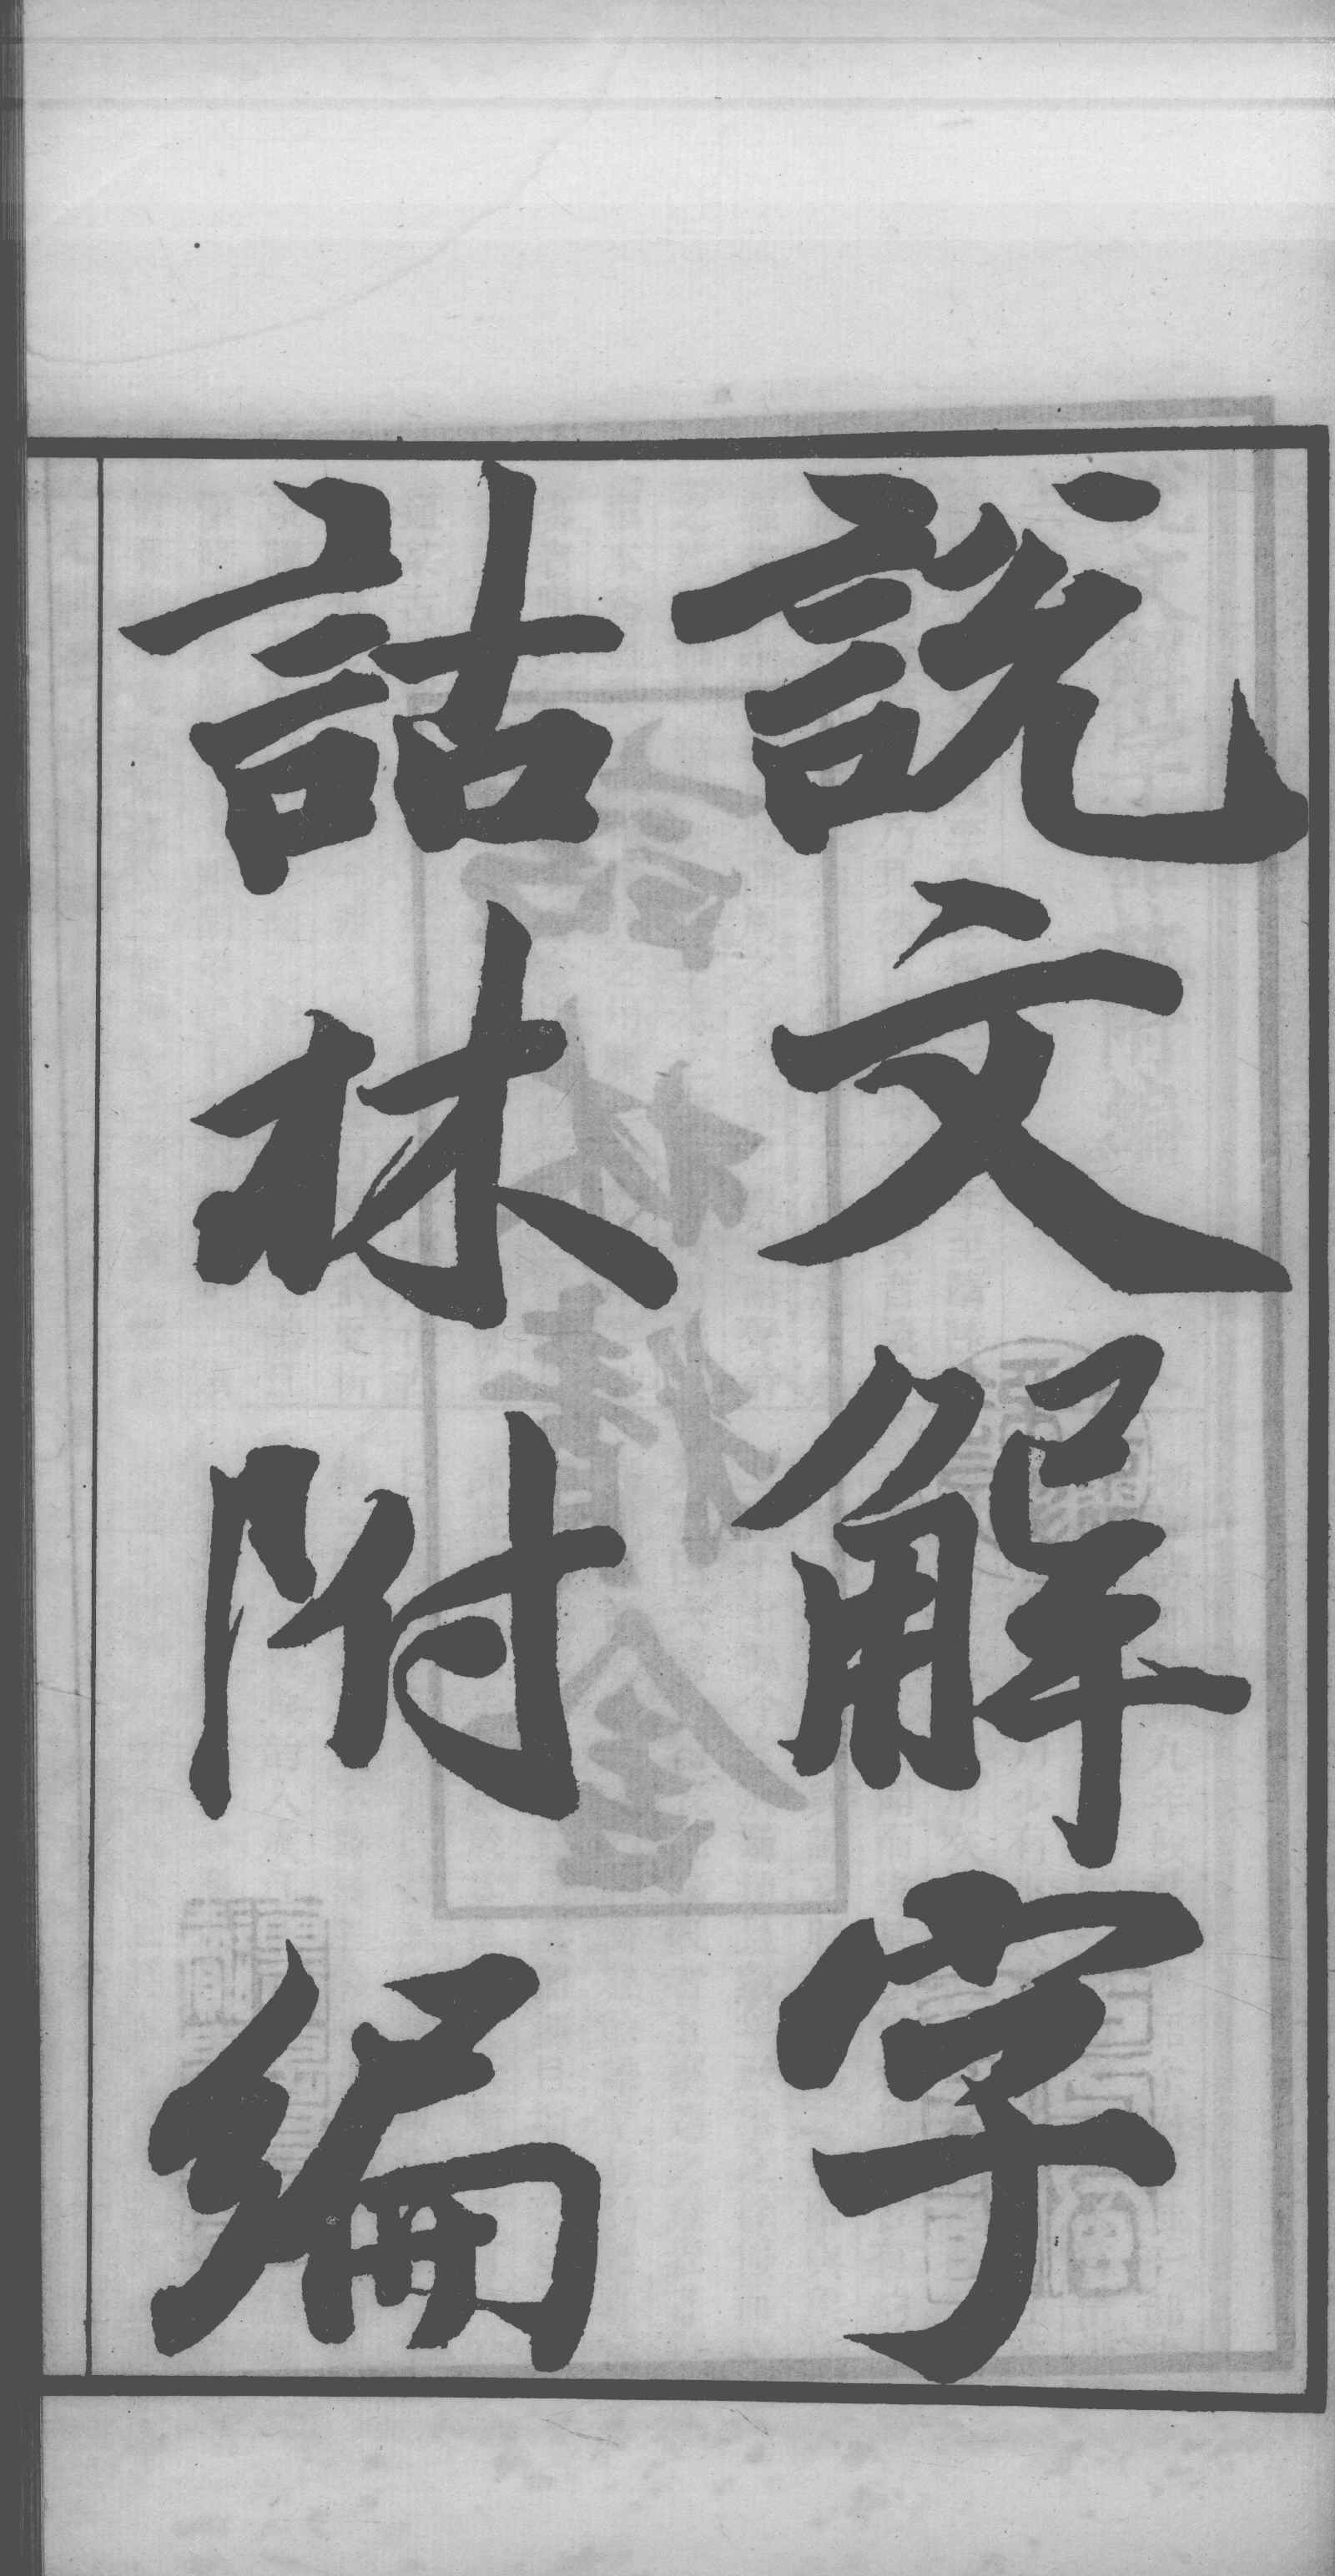 說文解字
詁林附編